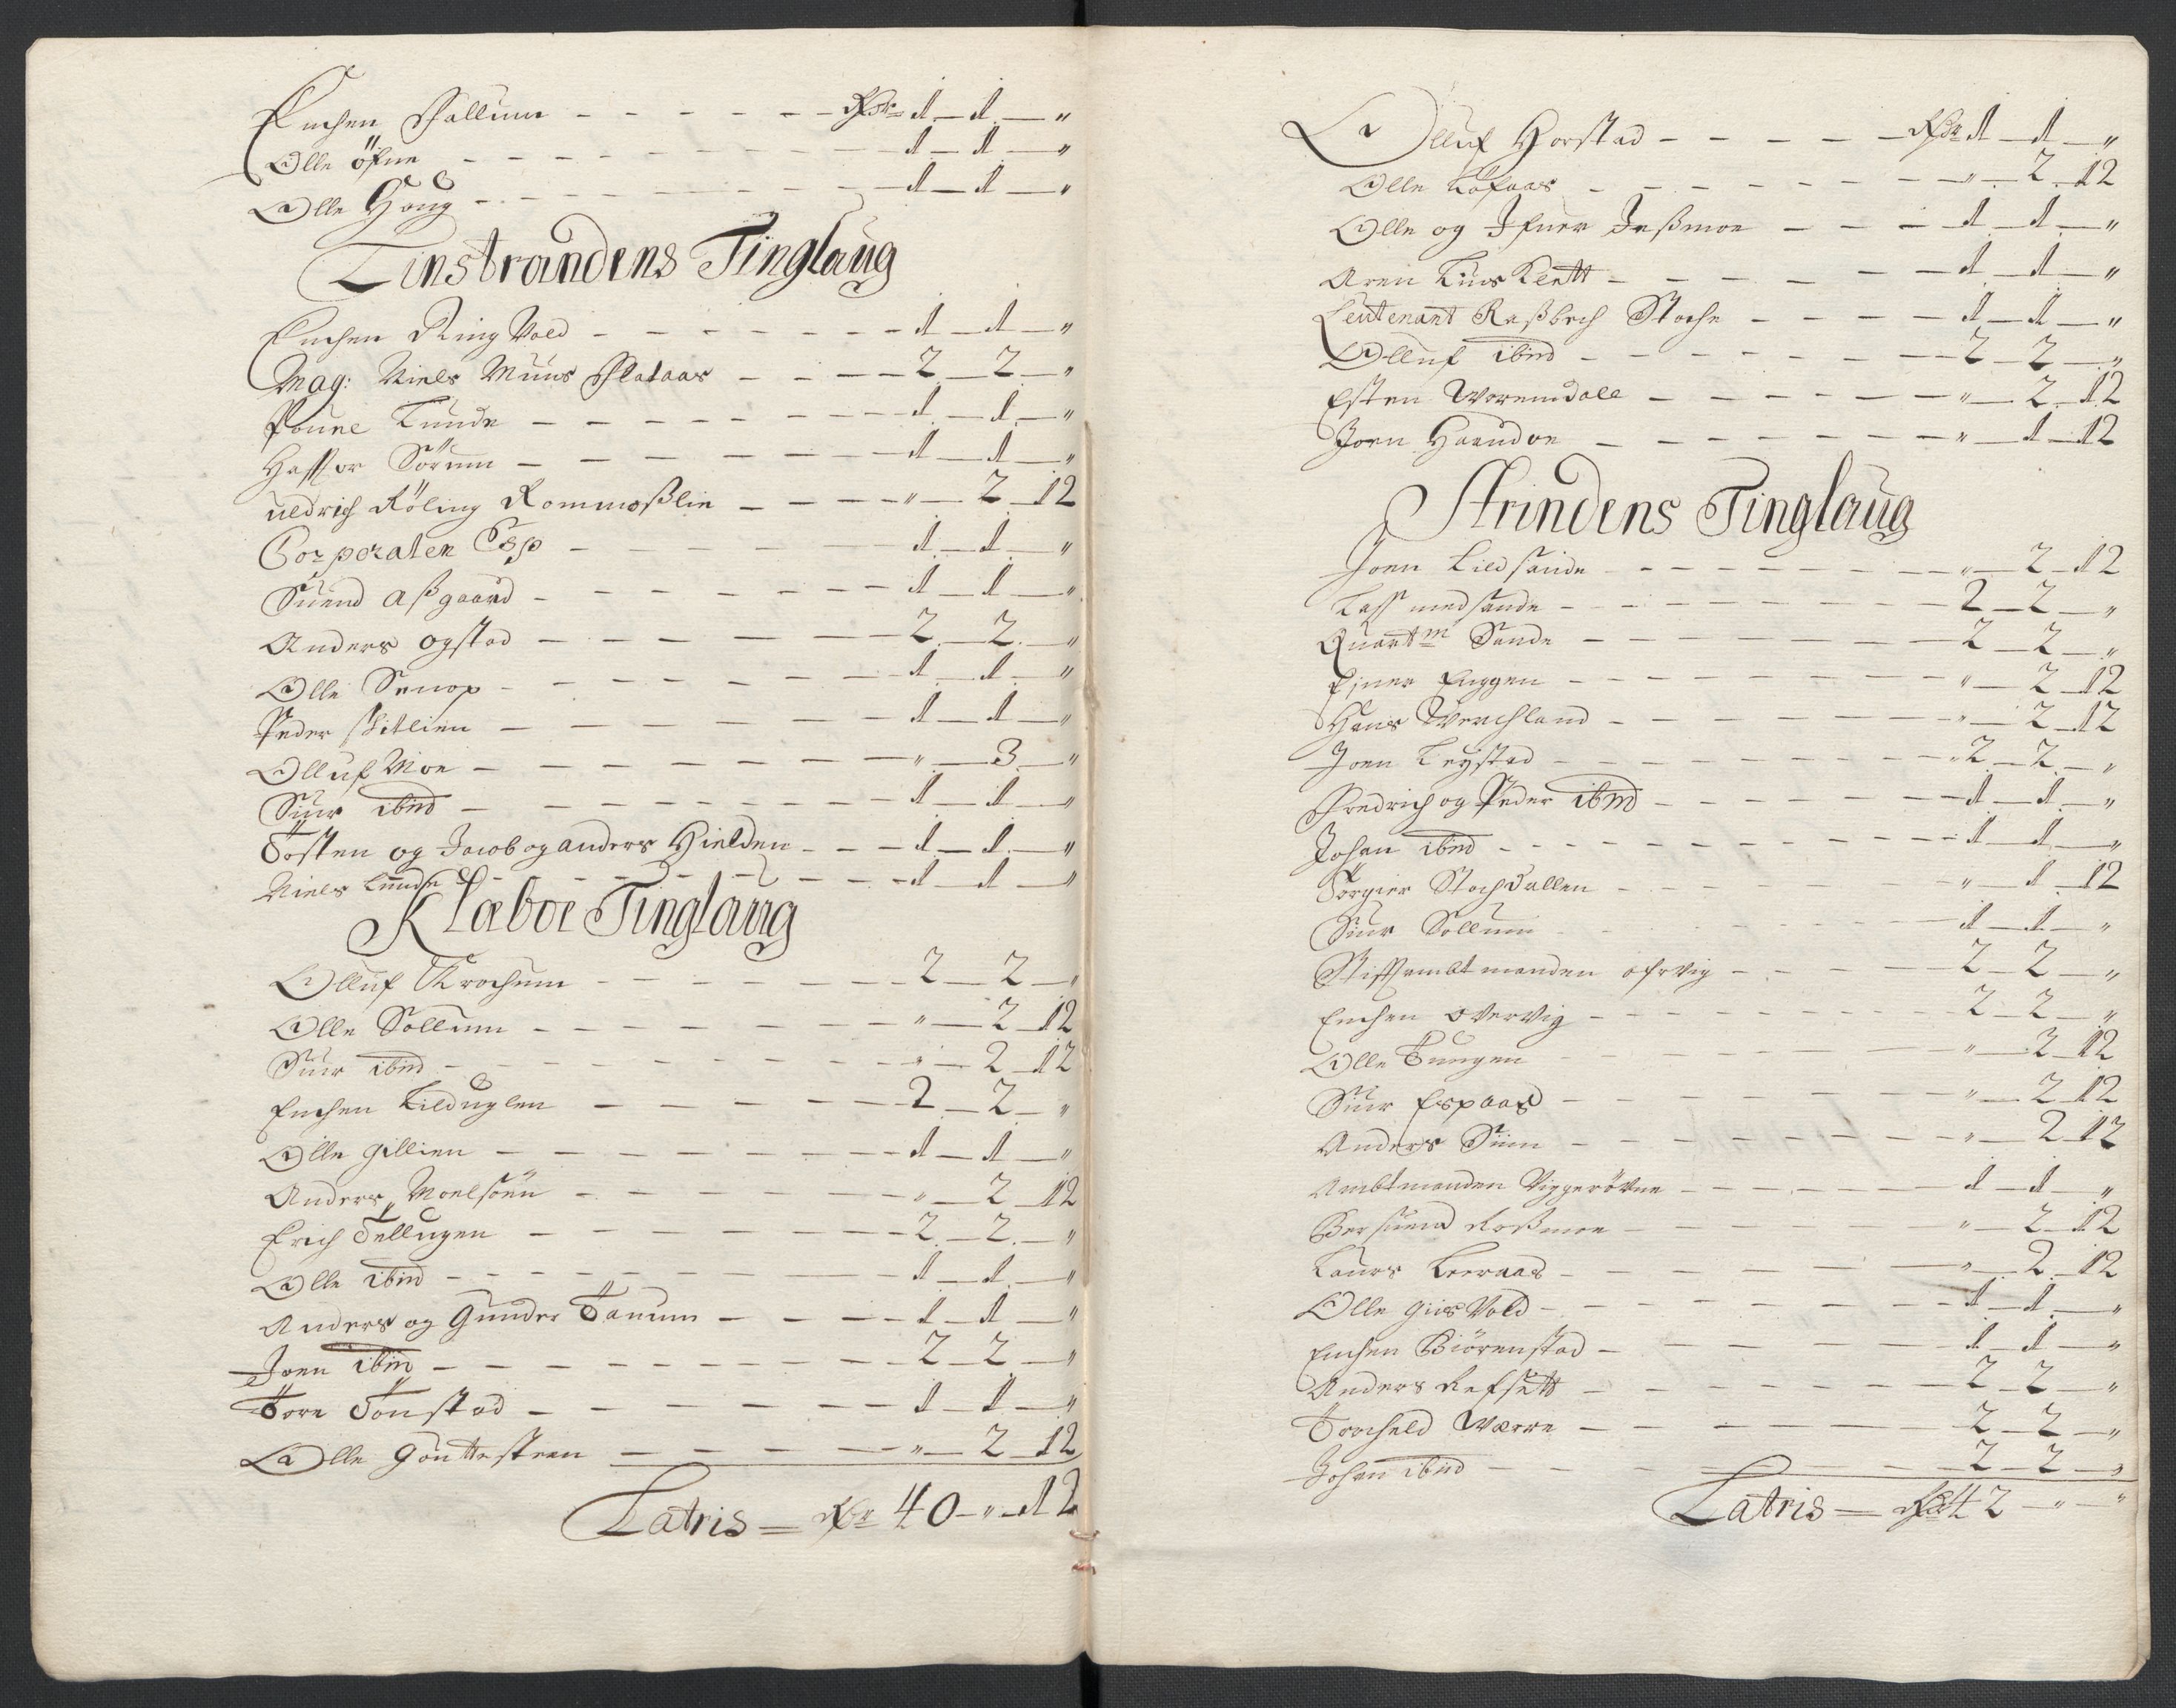 Enchen Hallum - - - - - - Rdr 1 - 1 - "
Olle öfne - - - - - - 1 - 1 - "
Olle Houg - - - - - - 1 - 1 - "
Linstrandens Tinglaug
Enchen Ring Vold - - - - - - 1 - 1 - "
Mag: Niels Muus Flataas - - - - 2 - 2 - "
Pouel Lunde - - - - - - 1 - 1 - "
Haffor Sörum - - - - - - 1 - 1 - "
uldrich Röling Rommoßlie - - - - " - 2 - 12
Corporalen Esp - - - - - 1 - 1 - "
Suend aßgaard - - - - - - 1 - 1 - "
Anders ogstad - - - - - 2 - 2 - "
Olle Senop - - - - - - 1 - 1 - "
Peder skitlien - - - - - - 1 - 1 - "
Olluf Moe - - - - - - " - 3 - "
Siur ibid - - - - - - 1 - 1 - "
Tosten og Jacob og anders Hielden - - - 1 - 1 - "
Niels Lundse - - - - - 1 - 1 - "
Klæboe Tinglaug
Olluf Krochum - - - - - - 2 - 2 - "
Olle Sollum - - - - - - " - 2 - 12
Siur ibid - - - - - - " - 2 - 12
Enchen Lilduglen - - - - - 2 - 2 - "
Olle gillien - - - - - - 1 - 1 - "
Anders Moelsöen - - - - - " - 2 - 12
Erich Tellugen - - - - - - 2 - 2 - "
Olle ibid - - - - - - 1 - 1 - "
Anders og Gunder Tanum - - - - 1 - 1 - "
Joen ibid - - - - - - 2 - 2 - "
Tore Tonstad - - - - - - 1 - 1 - "
Olle Gouttesteen - - - - " - 2 - 12
Latris = Rdr 40 - " - 12
Olluf Horstad - - - - - Rdr 1 - 1 - "
Olle Lofaas - - - - - - " - 2 - 12
Olle og Ifuer Jeßmoe - - - 1 - 1 - "
Aren Lius Klett - - - - - 1 - 1 - "
Leutenant Raßbech Stoche - - - - 1 - 1 - "
Olluf ibid - - - - - - 2 - 2 - "
Esten Woremdall - - - - - " - 2 - 12
Joen Haendoe - - - - - - " - 1 - 12
Strindens Tinglaug
Joen Lilsande - - - - - - " - 2 - 12
Lass medsande - - - - - - 2 - 2 - "
Quartm Sande - - - - - 2 - 2 - "
Einer Enggen - - - - - - " - 2 - 12
Hans Werchland - - - - - " - 2 - 12
Joen Leystad - - - - - - " 2 - 2 - "
Fredrich og Peder ibid - - - - - 1 - 1 - "
Johan ibid - - - - - - 1 - 1 - "
Torgier Stochdallen - - - - " - 1 - 12
Siur Sollum - - - - - 1 - 1 - "
Stiftambtmanden ofrvig - - - 2 - 2 - "
Enchen overvig - - - - - - 2 - 2 - "
Olle Tungen - - - - - " - 2 - 12
Siur Espaas - - - - - - " - 2 - 12
Anders Siim - - - - - - " - 2 - 12
Ambtmanden Viggerövne - - - - 1 - 1 - "
Bersuend Roßmoe - - - - " - 2 - 12
Laurs Leeraas - - - - - " - 2 - 12
Olle giis Vold - - - - - - 1 - 1 - "
Enchen Biörenstad - - - - 1 - 1 - "
Anders Refsett - - - - - 2 - 2 - "
Torcheld Wærre - - - - - 2 - 2 - "
Johan ibid - - - - - 2 - 2 - "
Latris = Rdr 42 - " - "